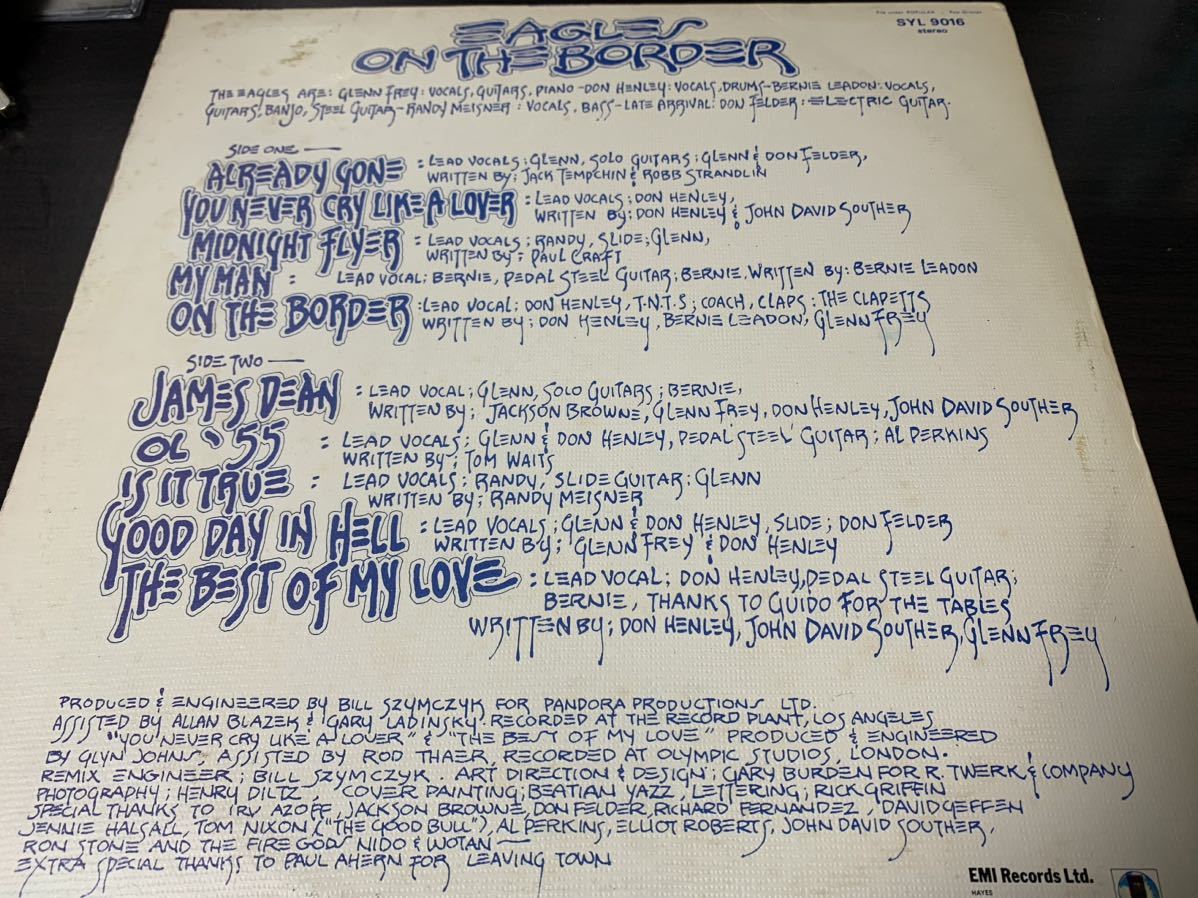 File under POPULAR : Pop Groups
SYL 9016
stereo
EAGLES
ON THE BORDER
THE EAGLES ARE: GLENN FREY: VOCALS, GUITARS, PIANO-DON HENLEY: VOCALS, DRUMS-BERNIE LEADON: VOCALS,
GUITARS, BANJO, STEEL GUITAR-RANDY MEISNER: VOCALS, BASS-LATE ARRIVAL: DON FELDER: ELECTRIC GUITAR.
SIDE ONE —
ALREADY GONE : LEAD VOCALS; GLENN, SOLO GUITARS; GLENN & DON FELDER,
WRITTEN BY; JACK TEMPCHIN & ROBB STRANDLIN
YOU NEVER CRY LIKE A LOVER : LEAD VOCALS; DON HENLEY,
WRITTEN BY; DON HENLEY & JOHN DAVID SOUTHER
MIDNIGHT FLYER : LEAD VOCALS; RANDY, SLIDE; GLENN,
WRITTEN BY; PAUL CRAFT
MY MAN : LEAD VOCAL; BERNIE, PEDAL STEEL GUITAR; BERNIE, WRITTEN BY: BERNIE LEADON
ON THE BORDER : LEAD VOCAL; DON HENLEY, T.N.T.S; COACH, CLAPS: THE CLAPETTS
WRITTEN BY; DON HENLEY, BERNIE LEADON, GLENN FREY
SIDE TWO —
JAMES DEAN : LEAD VOCAL; GLENN, SOLO GUITARS; BERNIE,
WRITTEN BY; JACKSON BROWNE, GLENN FREY, DON HENLEY, JOHN DAVID SOUTHER
OL '55 : LEAD VOCALS; GLENN & DON HENLEY, PEDAL STEEL GUITAR; AL PERKINS
WRITTEN BY; TOM WAITS
IS IT TRUE : LEAD VOCALS; RANDY, SLIDE GUITAR: GLENN
WRITTEN BY; RANDY MEISNER
GOOD DAY IN HELL : LEAD VOCALS; GLENN & DON HENLEY, SLIDE; DON FELDER
WRITTEN BY; GLENN FREY & DON HENLEY
THE BEST OF MY LOVE : LEAD VOCAL; DON HENLEY, PEDAL STEEL GUITAR;
BERNIE, THANKS TO GUIDO FOR THE TABLES
WRITTEN BY; DON HENLEY, JOHN DAVID SOUTHER, GLENN FREY
PRODUCED & ENGINEERED BY BILL SZYMCZYK FOR PANDORA PRODUCTIONS LTD.
ASSISTED BY ALLAN BLAZEK & GARY LADINSKY. RECORDED AT THE RECORD PLANT, LOS ANGELES
"YOU NEVER CRY LIKE A LOVER" & "THE BEST OF MY LOVE" PRODUCED & ENGINEERED
BY GLYN JOHNS, ASSISTED BY ROD THAER, RECORDED AT OLYMPIC STUDIOS, LONDON.
REMIX ENGINEER; BILL SZYMCZYK. ART DIRECTION & DESIGN; GARY BURDEN FOR R. TWERK & COMPANY
PHOTOGRAPHY; HENRY DILTZ COVER PAINTING; BEATIAN YAZZ, LETTERING; RICK GRIFFIN
SPECIAL THANKS TO IRV AZOFF, JACKSON BROWNE, DON FELDER, RICHARD FERNANDEZ, DAVID GEFFEN
JENNIE HALSALL, TOM NIXON ("THE GOOD BULL"), AL PERKINS, ELLIOT ROBERTS, JOHN DAVID SOUTHER,
RON STONE AND THE FIRE GODS NIDO & WOTAN —
EXTRA SPECIAL THANKS TO PAUL AHERN FOR LEAVING TOWN
EMI Records Ltd.
HAYES